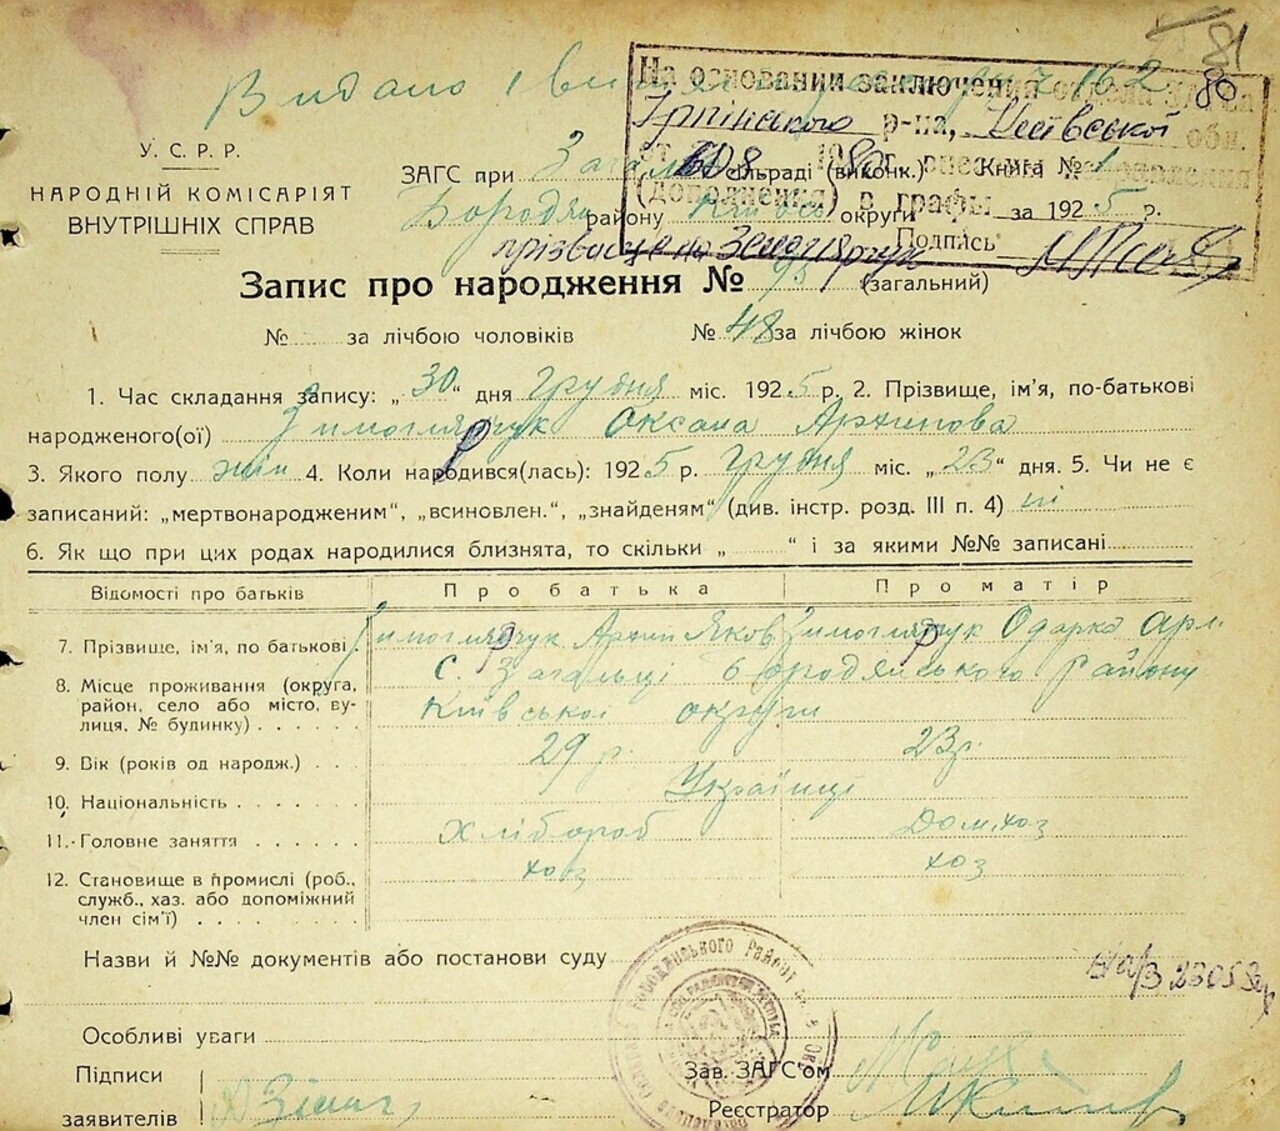 81
Видано 162 80
На основании заключения отдела ЗАГСа
Ірпінського р-на, Київської обл.
У. С. Р. Р.
НАРОДНІЙ КОМІСАРІЯТ
ВНУТРІШНІХ СПРАВ
ЗАГС при сільраді (виконк.) Книга № 1
(дополнения) в графы
Бородян району Київсь округи за 1925 р.
Подпись
прізвище на Земоглярчук
Запис про народження № 93 (загальний)
№ за лічбою чоловіків № 48 за лічбою жінок
1. Час складання запису: „30“ дня Грудня міс. 1925 р. 2. Прізвище, ім’я, по-батькові
народженого(ої) Зимоглярчук Оксана Архипова
3. Якого полу жін 4. Коли народився(лась): 1925 р. Грудня міс. „23“ дня. 5. Чи не є
записаний: „мертвонародженим“, „всиновлен.“, „знайденям“ (див. інстр. розд. III п. 4) ні
6. Як що при цих родах народилися близнята, то скільки „ “ і за якими №№ записані
Відомості про батьків Про батька Про матір
7. Прізвище, ім’я, по батькові. Зимоглярчук Архип Яков Зимоглярчук Одарка
8. Місце проживання (округа, район, село або місто, вулиця, № будинку) с. Загальці Бородянського Району
Київської округи
9. Вік (років од народж.) 29 р. 23 р.
10. Національність Українці
11. Головне заняття Хлібороб Дом. хоз
12. Становище в промислі (роб., служб., хаз. або допоміжний член сім’ї) хоз хоз
Назви й №№ документів або постанови суду
Особливі уваги
Підписи
заявителів
Зав. ЗАГС’ом
Реєстратор